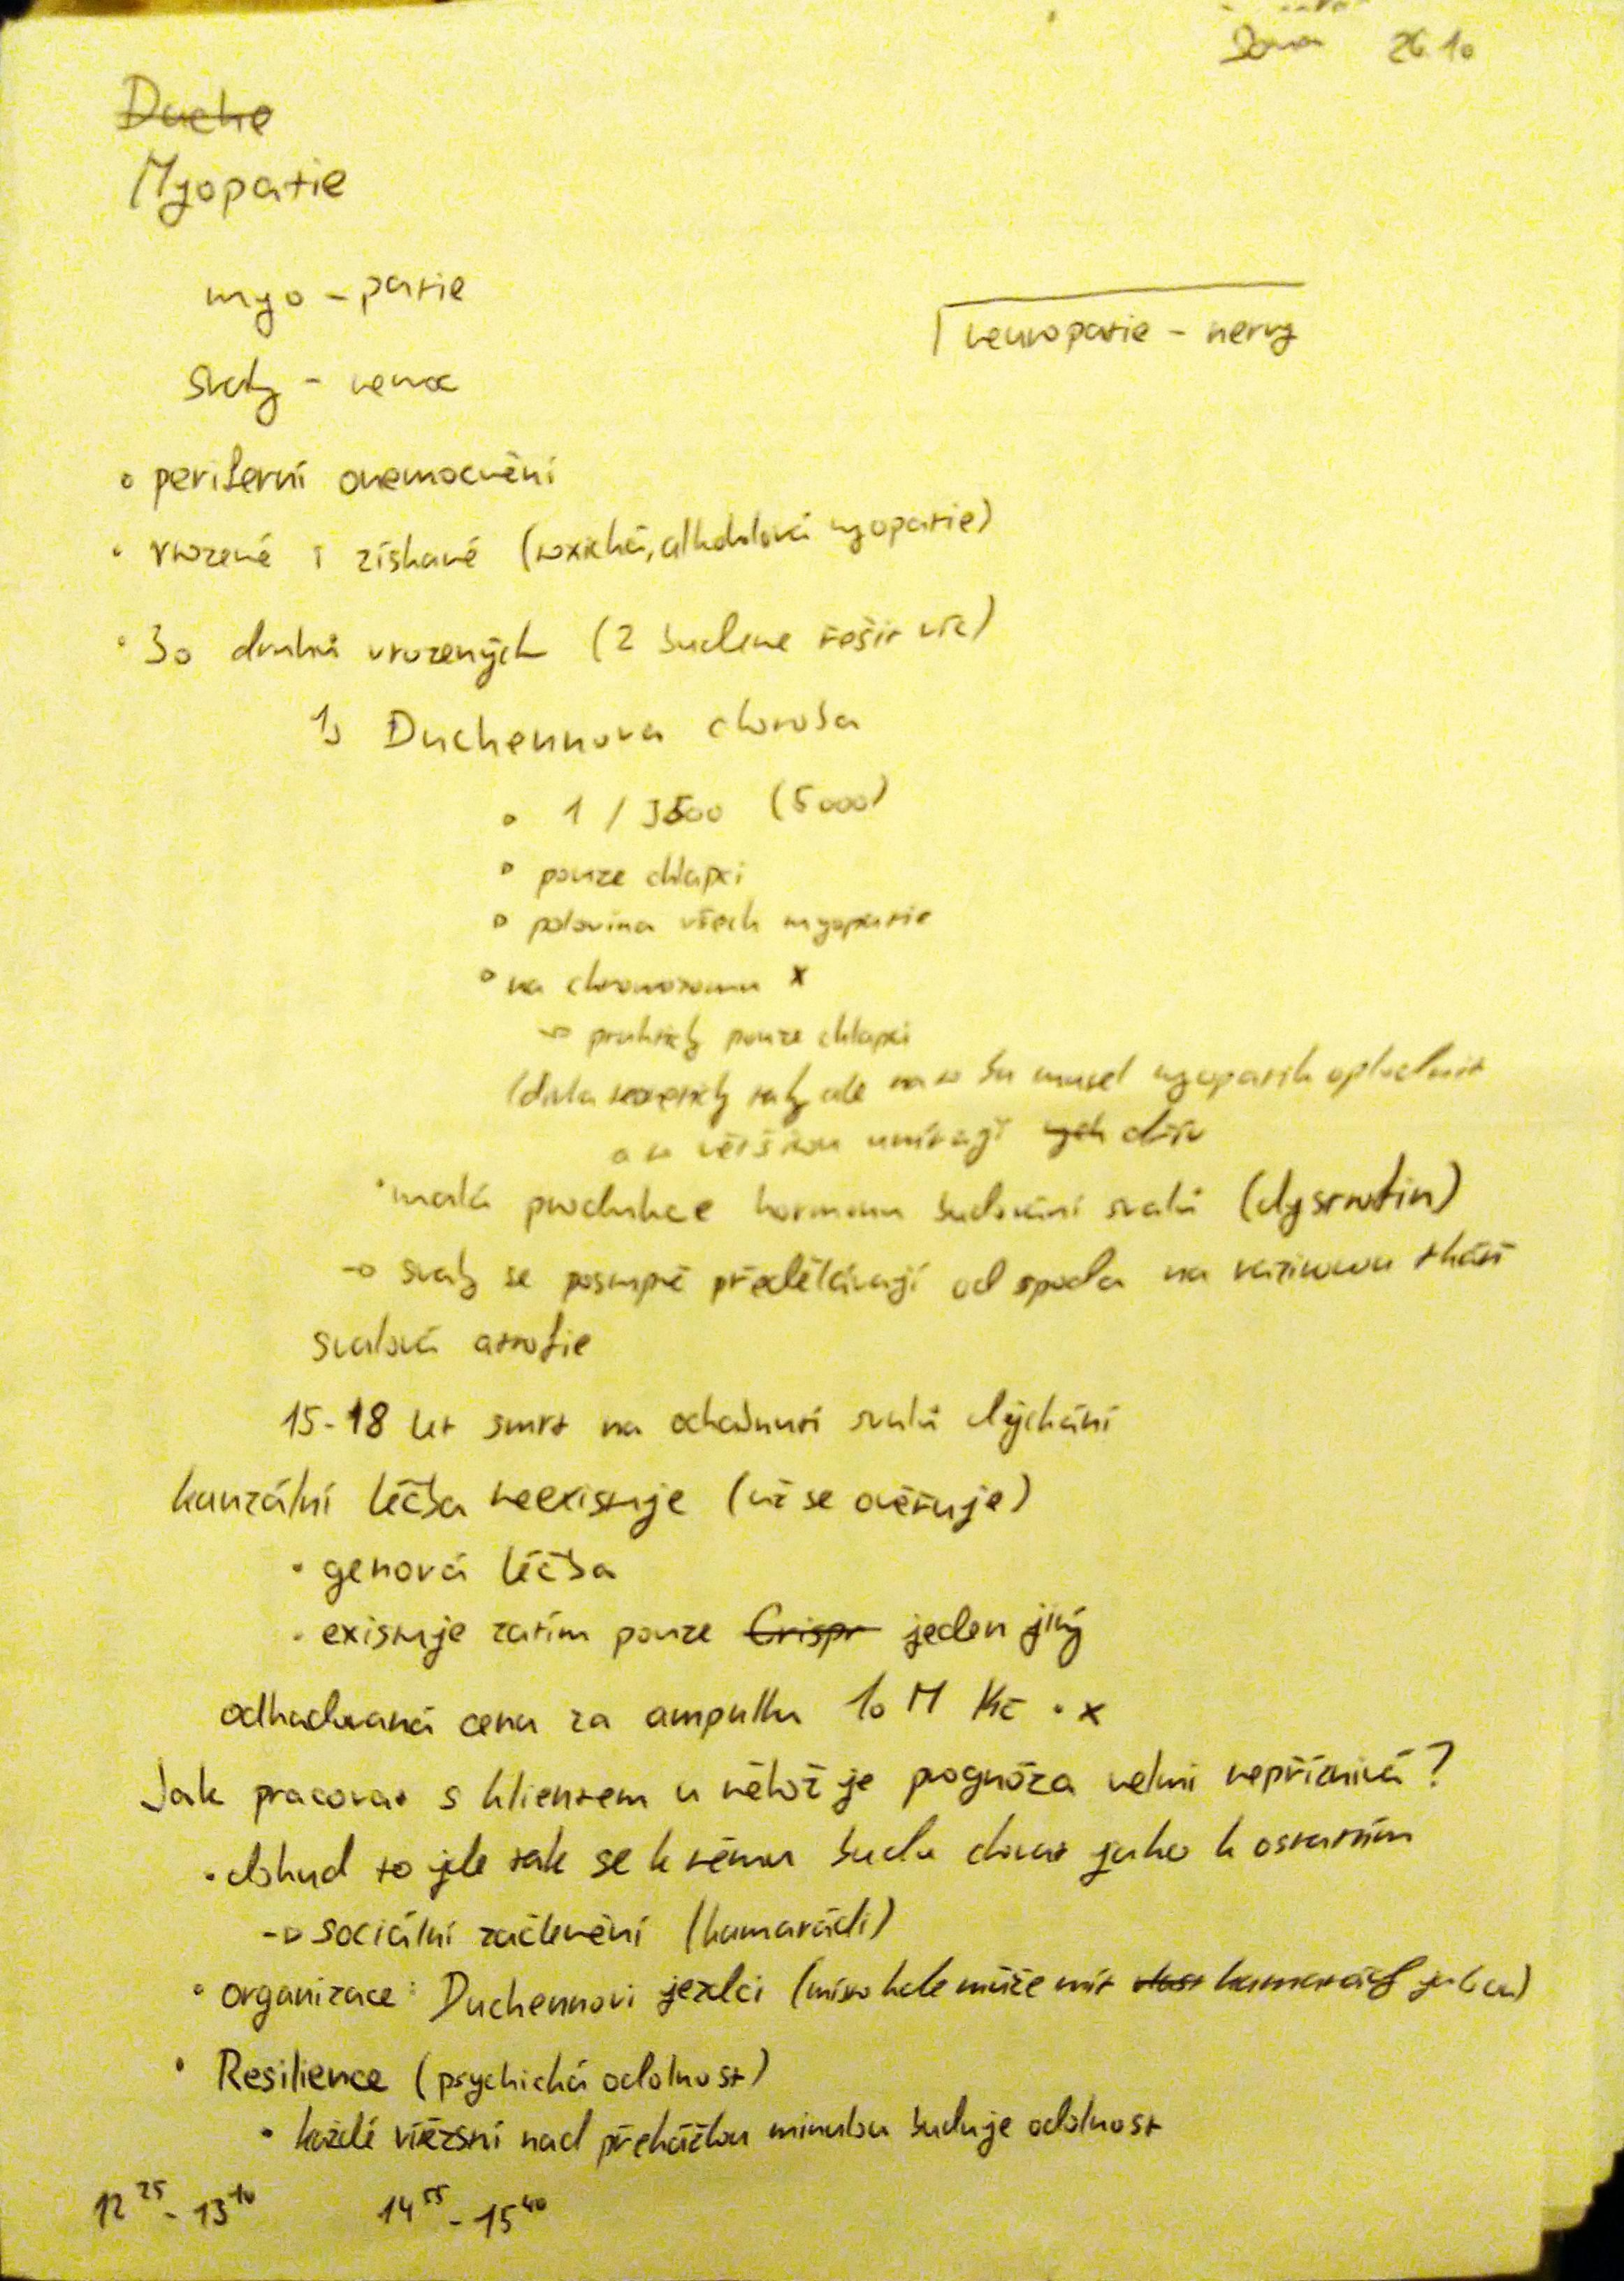 26.10
Duche
Myopatie
myo - patie
neuropatie - nervy
Svaly - nemoc
• periferní onemocnění
• vrozené i získané (toxická, alkoholová myopatie)
• 30 druhů vrozených (2 budeme řešit víc)
1) Duchennova choroba
• 1 / 3500 (5000)
• pouze chlapci
• polovina všech myopatie
• na chromozomu X
→ prakticky pouze chlapci
(dívka teoreticky taky ale na to bu musel myopatik oplodnit
a to většinou umírají dřív
• malá produkce hormonu budování svalů (dystrofin)
→ svaly se postupně předělávají od spoda na vazivovou tkáň
svalová atrofie
15-18 let smrt na ochabnutí svalů dýchání
kauzální léčba neexistuje (už se ověřuje)
• genová léčba
• existuje zatím pouze Crispr jeden jiný
odhadovaná cena za ampulku 10 M Kč • x
Jak pracovat s klientem u něhož je prognóza velmi nepříznivá?
• dokud to jde tak se k němu budu chovat jako k ostatním
→ sociální začlenění (kamarádi)
• organizace: Duchennovi jezdci (místo kole může mít kamarády
• Resilience (psychická odolnost)
• každé vítězsní nad překážkou minulou buduje odolnost
12 25 - 13 10 14 55 - 15 40